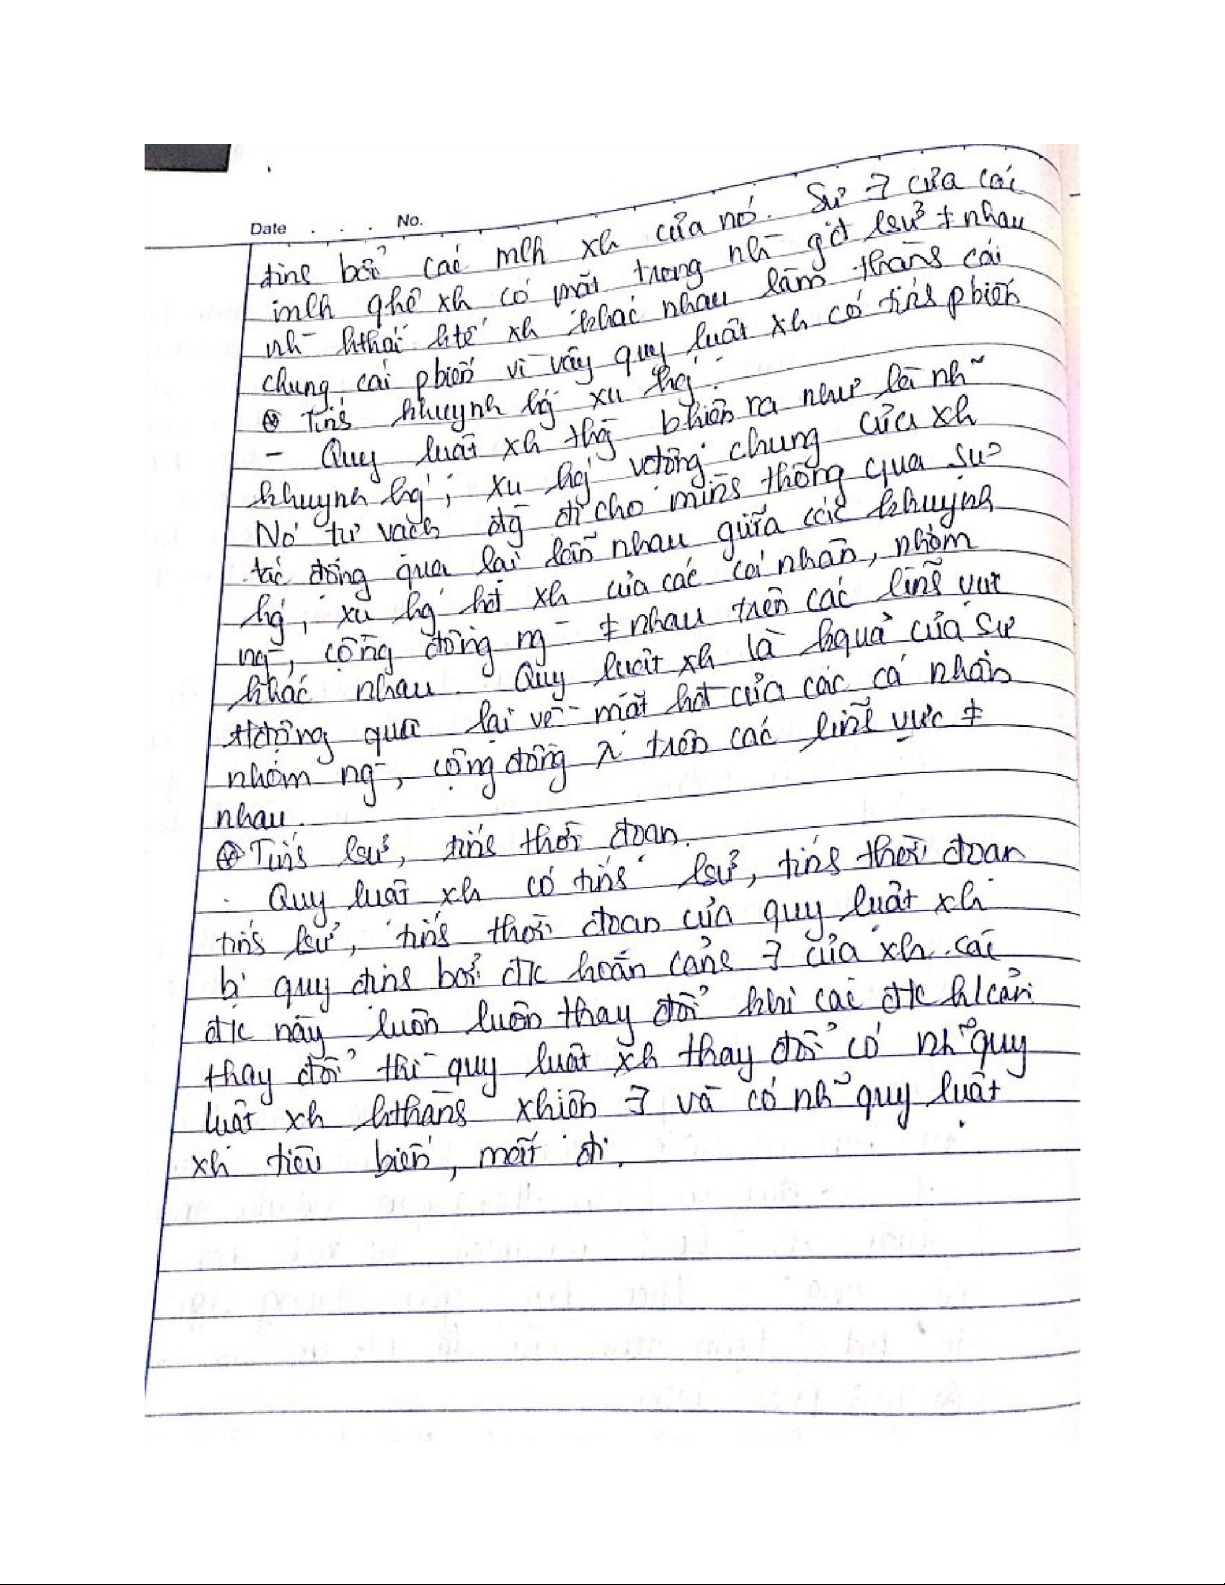 Date . . . . No.
định bởi các mlh xh của nó. Sự ∃ của các
mlh qhệ xh có mặt trong nh~ gđ lsử ≠ nhau
nh~ hthái ktế xh khác nhau làm thành cái
chung cái phiến vì vậy quy luật xh có tính phiến
⊛ Tính khuynh hg, xu hg:
- Quy luật xh thg bhiện ra như là nh~
khuynh hg, xu hg vđộng chung của xh
Nó tự vạch đg đi cho mình thông qua sự
tác động qua lại lẫn nhau giữa các khuynh
hg, xu hg hđ xh của các cá nhân, nhóm
ng, cộng đồng ng ≠ nhau trên các lĩnh vực
khác nhau. Quy luật xh là kquả của sự
tđộng qua lại về mặt hđ của các cá nhân
nhóm ng, cộng đồng trên các lĩnh vực ≠
nhau.
⊛ Tính lsử, tính thời đoạn.
- Quy luật xh có tính lsử, tính thời đoạn
tính lsử, tính thời đoạn của quy luật xh
b' quy định bởi đk hoàn cảnh ∃ của xh. các
đk này luôn luôn thay đổi khi các đk hcảnh
thay đổi thì quy luật xh thay đổi có nh~ quy
luật xh hthành xhiện ∃ và có nh~ quy luật
xh tiêu biến, mất đi.